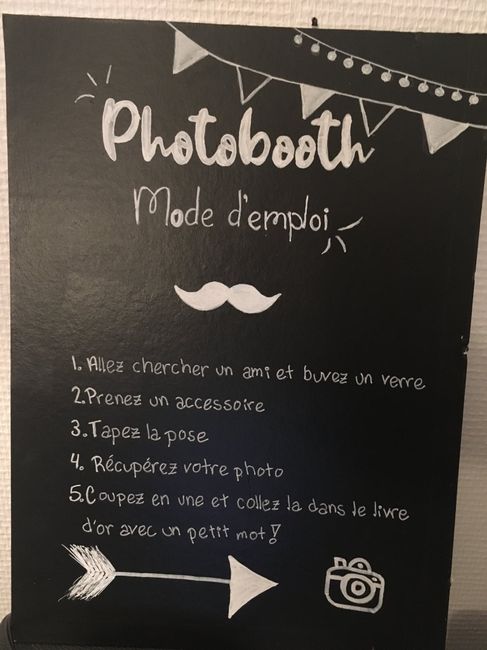 Photobooth
Mode d'emploi
1. Allez chercher un ami et buvez un verre
2.Prenez un accessoire
3.Tapez la pose
4. Récupérez votre photo
5.Coupez en une et collez la dans le livre
d'or avec un petit mot !